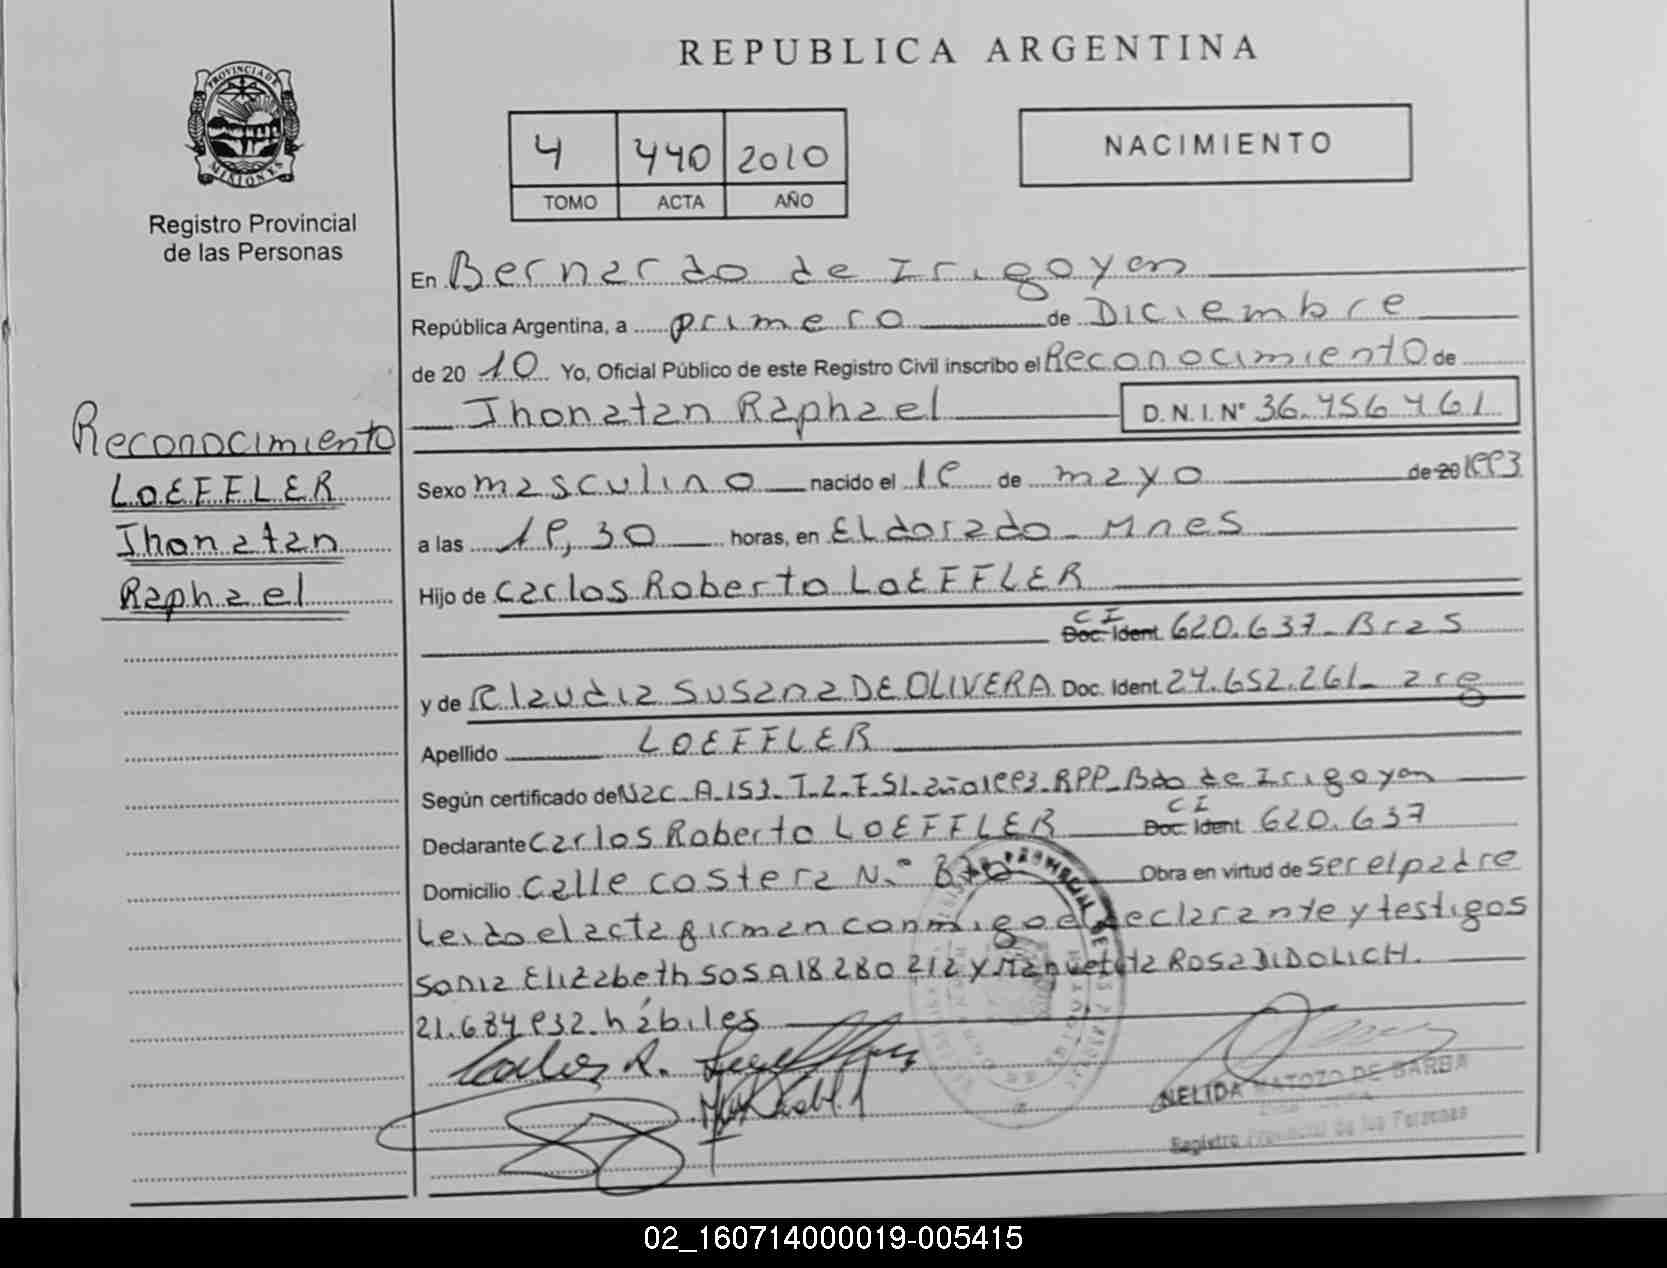 REPUBLICA ARGENTINA
PROVINCIA DE
MISIONES
Registro Provincial
de las Personas
4 440 2010
TOMO ACTA AÑO
NACIMIENTO
En Bernardo de Irigoyen
República Argentina, a primero de Diciembre
de 2010 Yo, Oficial Público de este Registro Civil inscribo el Reconocimiento de
Jhonatan Raphael D.N.I. Nº 36.456.461
Reconocimiento
LOEFFLER
Jhonatan
Raphael
Sexo masculino nacido el 19 de mayo de 20 1993
a las 19,30 horas, en Eldorado - Mnes
Hijo de Carlos Roberto LOEFFLER
CI
Doc. Ident. 620.637 - Bras
y de Claudia Susana DE OLIVERA Doc. Ident. 24.652.261 - arg
Apellido LOEFFLER
Según certificado de Nac. A. 153. T. 2. F. 51. año 1993. RPP. Bdo de Irigoyen
CI
Declarante Carlos Roberto LOEFFLER Doc. Ident. 620.637
Domicilio Calle costera N.º Obra en virtud de ser el padre
Leido el acta firman conmigo el declarante y testigos
Sonia Elizabeth SOSA 18 280 212 y Rosa DIDOLICH.
21.684 932 - hábiles
Carlos R. Loeffler
NELIDA MATOZO DE BARBA
Registro Provincial de las Personas
02_160714000019-005415